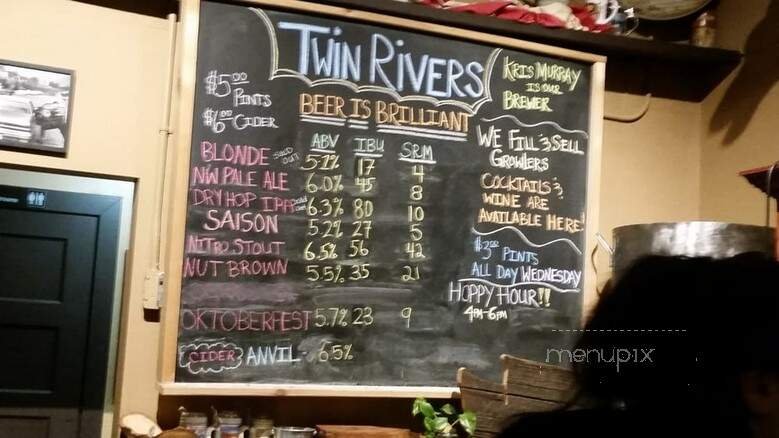 TWIN RIVERS
BEER IS BRILLIANT
$5.00 PINTS
$6.00 CIDER
KRIS MURRAY
IS OUR
BREWER
ABV IBU SRM
BLONDE SOLD OUT 5.1% 17 4
NW PALE ALE 6.0% 45 8
DRY HOP IPA SOLD OUT 6.3% 80 10
SAISON 5.2% 27 5
NITRO STOUT 6.5% 56 42
NUT BROWN 5.5% 35 21
OKTOBERFEST 5.7% 23 9
CIDER ANVIL - 6.5%
WE FILL & SELL
GROWLERS
COCKTAILS &
WINE ARE
AVAILABLE HERE!
$3.00 PINTS
ALL DAY WEDNESDAY
HOPPY HOUR!!
4PM-6PM
menupix